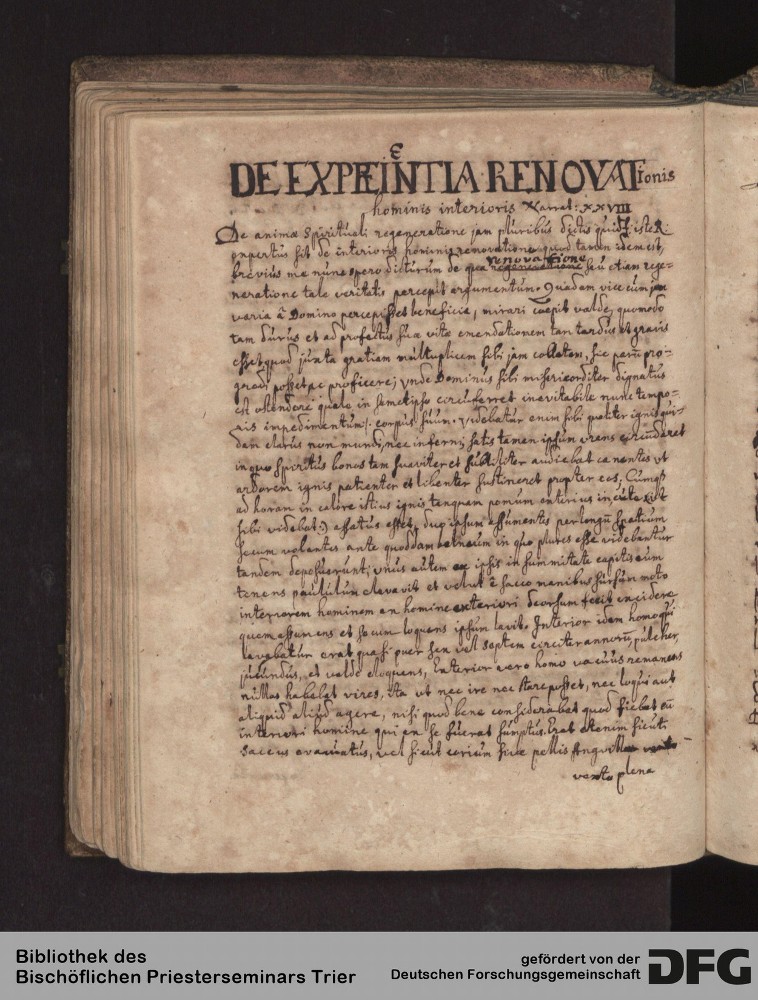 DE EXPERIENTIA RENOVATionis
hominis interioris Narrat: XXVIII
De animæ spirituali regeneratione jam pluribus dictis quid iste R.
expertus sit de interioris hominis renovatione quod tamen idem est,
brevius me nunc spero dicturum de qua renovatione seu etiam rege-
neratione tale veritatis percepit argumentum. Quadam vice cum jam
varia â Domino percepisset beneficia, mirari cæpit valde, quomodo
tam durus et ad profectus suæ vitæ emendationem tam tardus et gravis
esset, quod juxta gratiam multuplicem sibi jam collatam, sic parum pro-
gredi posset pe proficere; unde Dominus sibi misericorditer dignatus
est ostendere quale in semetipso circumferret inevitabile nunc tempo-
ris impedimentum, corpus suum. videbatur enim sibi qualiter ignis qui-
dam clarus non mundi, nec inferni, satis tamen ipsum urens circundaret
in quo spiritus bonos tam suaviter et subtiliter audiebat canentes ut
ardorem ignis patienter et libenter sustineret propter eos, Cumque
ad horam in calore istius ignis tanquam pomum interius in cute
sibi videbatur assatus esset, duo ipsum assumentes per longum spatium
secum volantes ante quoddam balneum in quo plures esse videbantur
tandem deposuerunt; unus autem ex ipsis in summitate capitis eum
tenens paululum elevavit et velut è sacco manibus sursum moto
interiorem hominem ex homine exteriori deorsum fecit excidere
quem assumens et secum loquens ipsum lavit. Interior idem homo qui
lavebatur erat quasi puer sex vel septem circiter annorum, pulcher,
jucundus, et valde eloquens, Exterior vero homo vacuus remanens
nullas habebat vires, ita ut nec ire nec stare posset, nec loqui aut
aliquid aliud agere, nisi quod bene considerabat quod fiebat cum
interiori homine qui ex se fuerat sumptus. Erat etenim sicuti
saccus evacuatus, vel sicut corium sive pellis Anguillæ vento
vento plena
Bibliothek des
Bischöflichen Priesterseminars Trier
gefördert von der
Deutschen Forschungsgemeinschaft
DFG